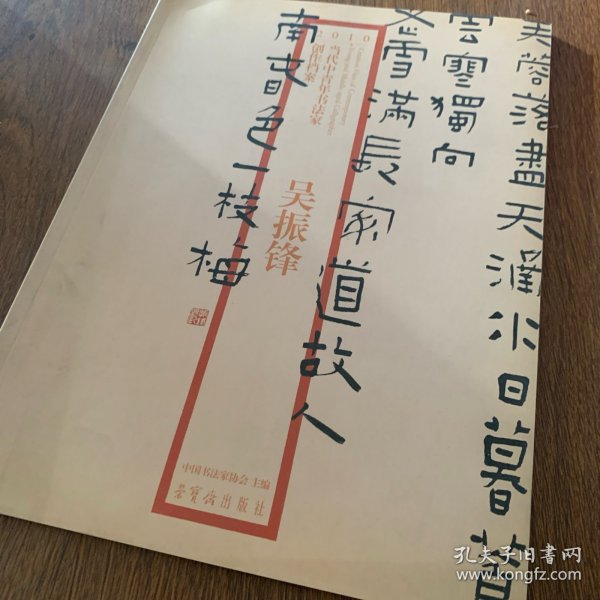 芙蓉落盡天涵水日暮
雲寒獨向
雪滿長安道故人
南春色一枝梅
2010
当代中青年书法家
创作档案
吴振锋
中国书法家协会 主编
荣宝斋出版社
孔夫子旧书网
www.kongfz.com